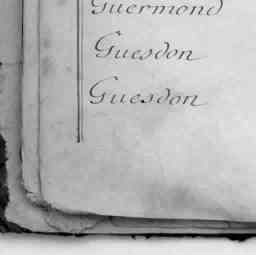 Guermond
Guesdon
Guesdon